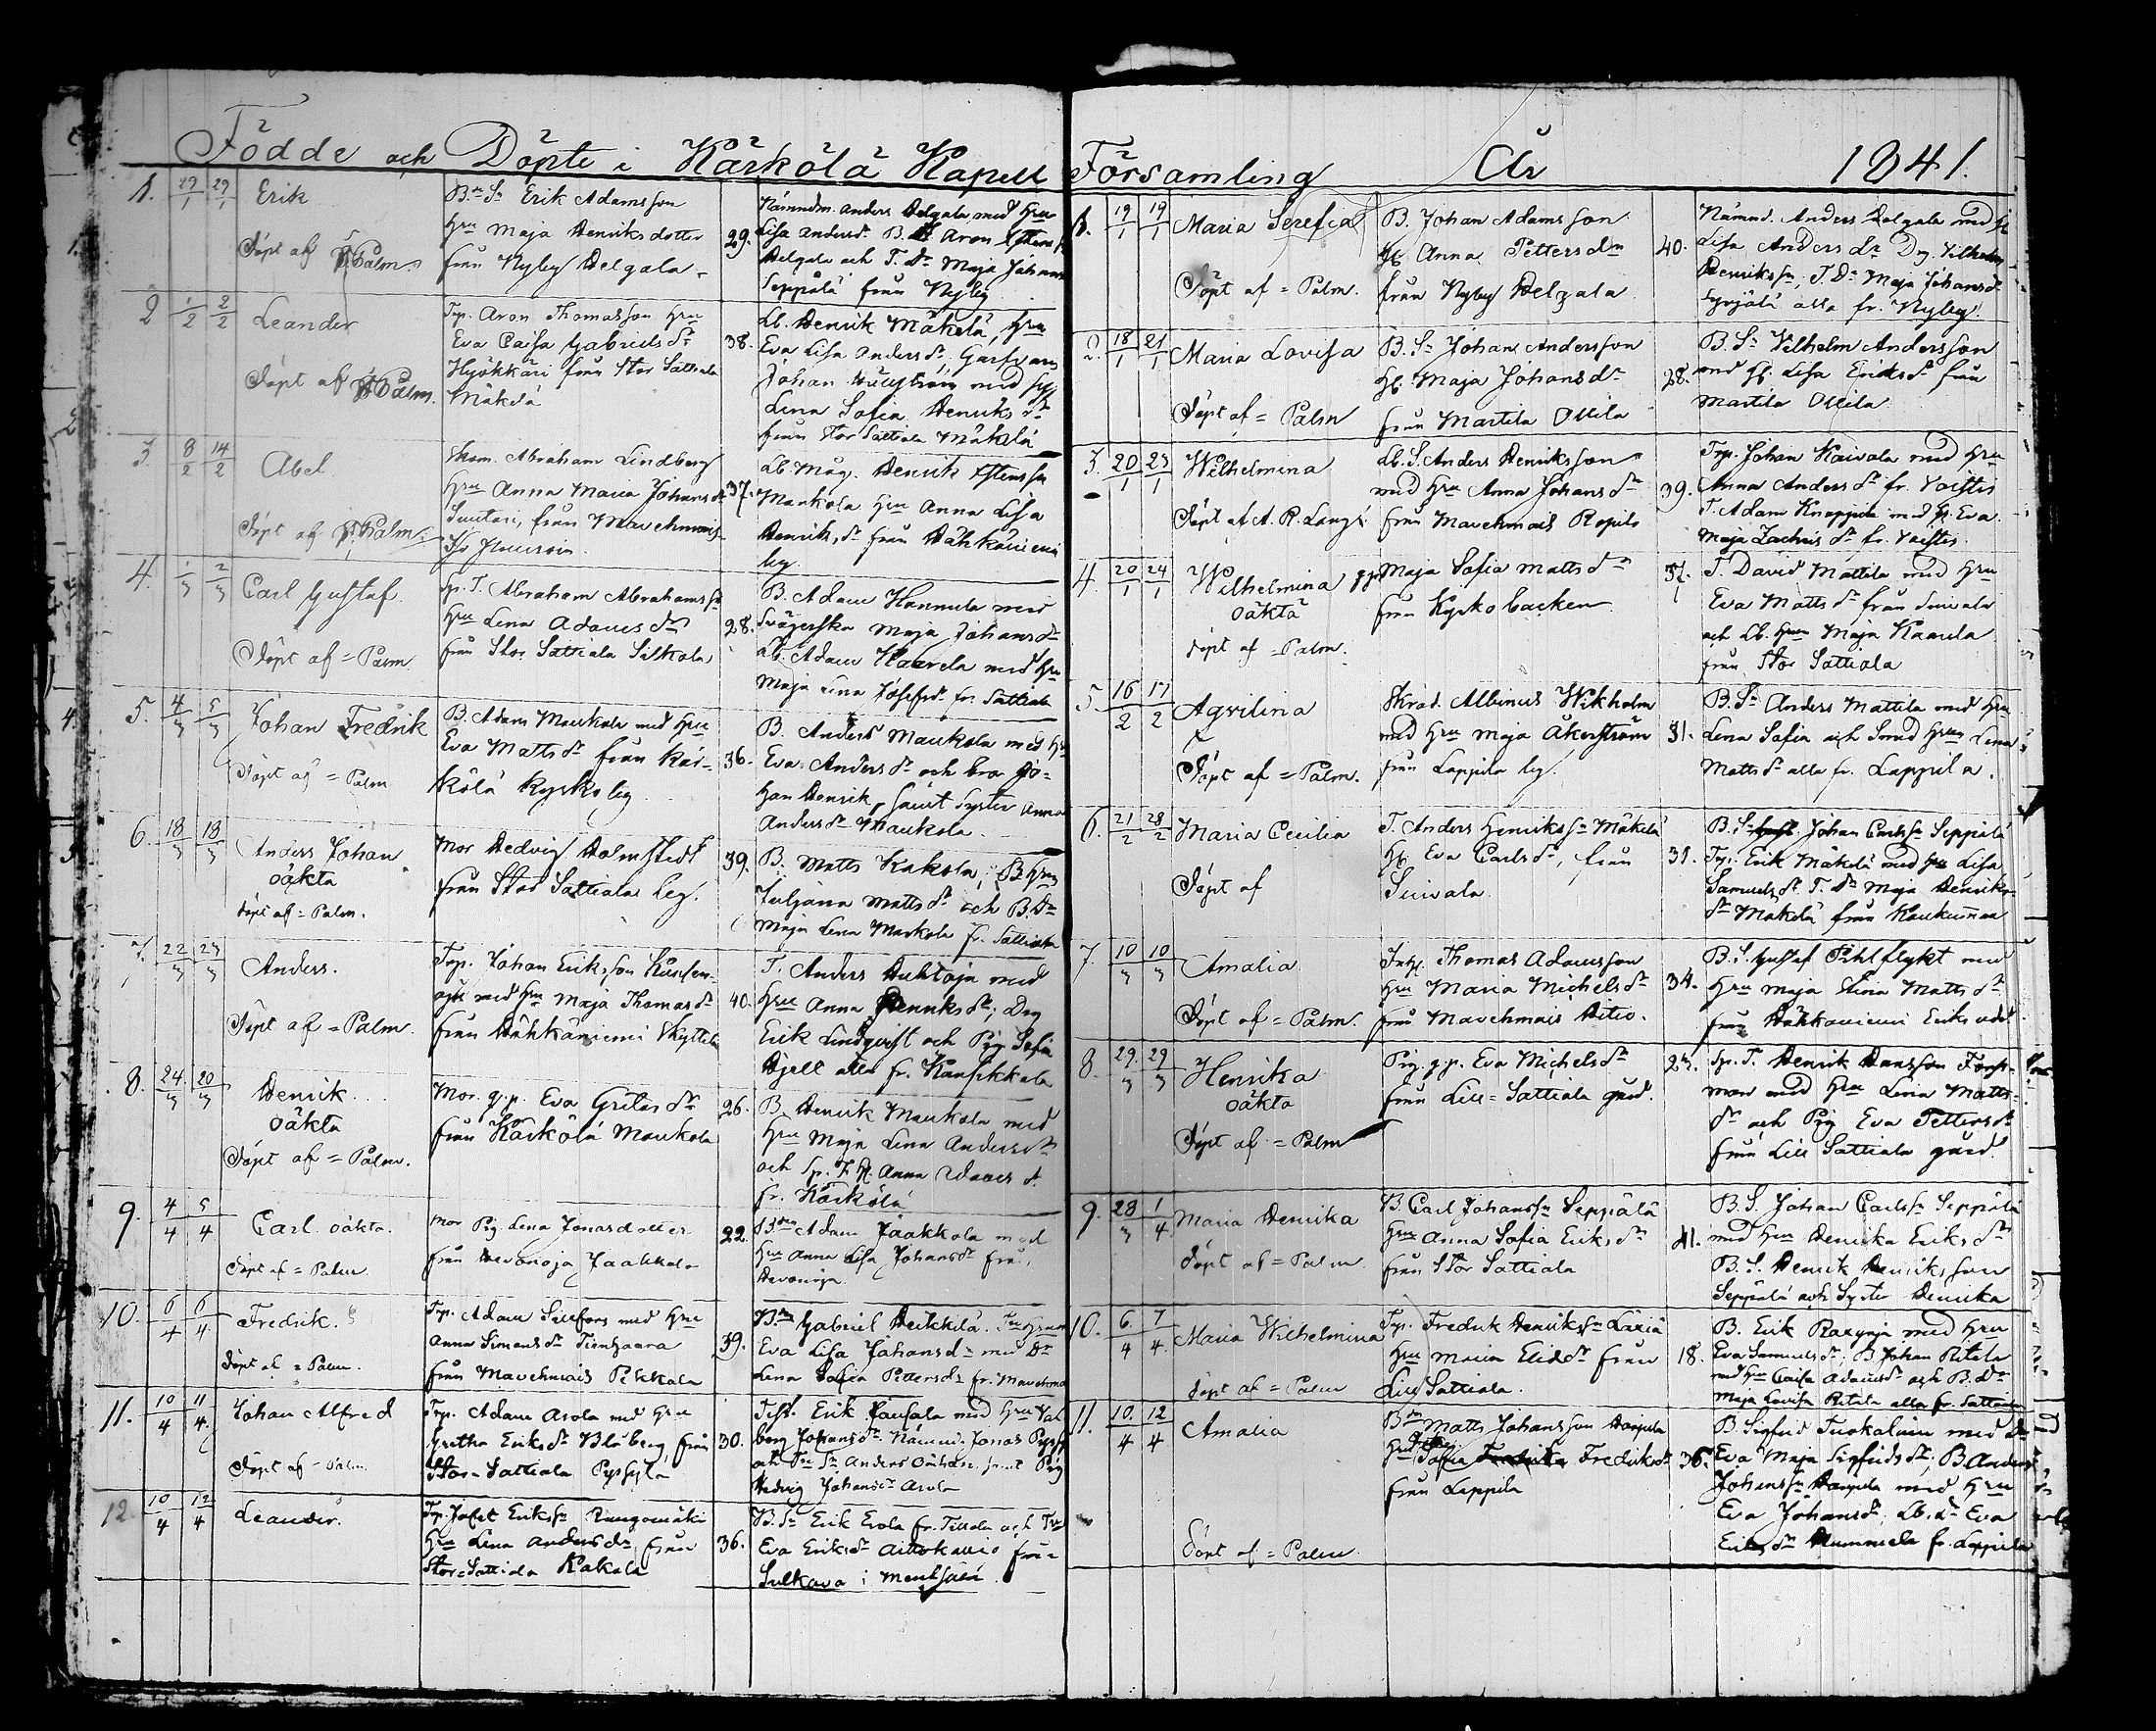 Födde och Döpte i Kärkölä Kapell Församling År 1841.
1. 29/1 29/1 Erik
Döpt af Palm.
B:de S. Erik Adamsson
Hru Maja Henriksdotter
från Nyby Helgala
29.
Nämndm. Anders Helgala med Hru
Lisa Andersd. B. Aron
Helgala och T. Dr Maja Johansd
Seppälä från Nyby
2 1/2 2/2 Leander
Döpt af Palm.
Trp. Aron Thomasson Hru
Eva Caisa Gabrielsdr
Hyökkäri från Stor Sattiala
Mäkelä
38.
Lb. Henrik Mäkelä, Hru
Eva Lisa Andersdr, Garfvaren
Johan med
Lena Sofia Henriksdr
från Stor Sattiala Mäkelä
3. 8/2 14/2 Abel
Döpt af Palm.
Abraham Lindberg
Hru Anna Maria Johansdr
från Marchmais
37.
Lb. Måg. Henrik
Maukola Hru Anna Lisa
Henriksdr från Hähkäniemi
by.
4. 1/3 2/3 Carl Gustaf
Döpt af = Palm
Sp. T. Abraham Abrahamss
Hru Lena Adamsdr
från Stor Sattiala Silkola
28.
B. Adam Hannula med
Svägerska Maja Johansdr
Lb. Adam Kaarela med Hru
Maja Lena Josefsdr fr. Sattiala
5. 4/3 5/3 Johan Fredrik
Döpt af = Palm
B. Adam Maukola med Hru
Eva Mattsdr från Kär-
kölä Kyrkoby
36.
B. Anders Maukola med Hru
Eva Andersdr och bror Jo-
han Henrik, samt Syster Anna
Andersdr Maukola.
6. 18/3 18/3 Anders Johan
oäkta
döpt af = Palm.
Mor Hedvig Holmstedt
från Stor Sattiala by.
39.
B. Matts Kakola, B Hru
Juliana Mattsdr och B. Dr
Maja Lena Maukola fr. Sattiala
7. 22/3 23/3 Anders.
Döpt af = Palm.
Trp. Johan Eriksson
med Hru Maja Thomasdr
från Hähkäniemi Skyttelä
40.
T. Anders Huhtoja med
Hru Anna Henriksdr, Drg
Erik Lindqvist och Pig Sofia
Hjell alla fr. Hausikkala
8. 24/3 Henrik
oäkta
Döpt af = Palm.
Mor. q.p. Eva Gretasdr
från Kärkölä Maukola
26.
B. Henrik Maukola med
Hru Maja Lena Andersdr
och Sp. T. H. Anna Adamsd.
fr. Kärkölä
9. 4/4 5/4 Carl oäkta.
Döpt af = Palm.
Mor Pig. Lena Jonasdotter
från Hevonoja Jaakkola
22.
B:den Adam Jaakkola med
Hru Anna Lisa Johansdr från
Hevonoja
10. 6/4 6/4 Fredrik.
Döpt af = Palm.
Trp. Adam Silfors med Hru
Anna Simonsdr Tienhaara
från Marchmais Pikkala
39.
B:den Gabriel Heikkilä.
Eva Lisa Johansdr med Dr
Lena Sofia Pettersdr fr. Marchmais
11. 10/4 11/4 Johan Alfred
Döpt af = Palm
Trp. Adam Arola med Hru
Gretha Eriksdr Blåberg från
Stor-Sattiala Pyssylä
30.
Erik med Hru Val
borg Johansdr. Nämnd. Jonas
och Anders samt Pig
Hedvig Johansdr Arola
12. 10/4 12/4 Leander.
Trp. Josef Erikss
Hru Lena Andersdr från
Stor-Sattiala Kakola
36.
B. Sn Erik Erola fr. Tillola och
Eva Eriksdr från
Sulkava i Mentsälä
1. 19/1 19/1 Maria Serefia
Döpt af = Palm.
B. Johan Adamsson
Hb. Anna Pettersdr
från Nyby Helgala
40.
Nämnd. Anders Helgala med H
Lisa Andersdr Drg Vilhelm
Henrikss, T. Dr Maja Johansdr
alla fr. Nyby.
2. 18/1 21/1 Maria Lovisa
Döpt af = Palm
B. Sn Johan Andersson
Hb. Maja Johansdr
från Martila Ollila
28.
B. Sn Vilhelm Andersson
med Hb. Lisa Eriksdr från
Martila Ollila
3. 20/1 23/1 Wilhelmina
Döpt af A. R. Langé.
Lb. S. Anders Henriksson
med Hru Anna Johansdr
från Marchmais Ropilo
39.
Trp. Johan Kaivola med Hru
Anna Andersdr fr. Voistio
T. Adam Knappila med H. Eva
Maja Zachrisdr fr. Voistio.
4. 20/1 24/1 Wilhelmina
oäkta
döpt af = Palm.
q.p. Maja Sofia Mattsdr
från Kyrkobacken
37.
T. David Mattila med Hru
Eva Mattsdr från Suivala
och Lb. Hru Maja Kaarela
från Stor Sattiala
5. 16/2 17/2 Agvilina
Döpt af = Palm.
Skräd. Albinus Wikholm
med Hru Maja Åkerström
från Lappila by.
31.
B. Sn Anders Mattila med Hru
Lena Sofia och Smed Hru Lena
Mattsdr alla fr. Lappila.
6. 21/2 28/2 Maria Cecilia
Döpt af
T. Anders Henrikss Mäkelä
Hb. Eva Carlsdr, från
Suivala.
31.
B. Sn Johan Carlss Seppälä
Trp. Erik Mäkelä med Hru Lisa
Samuelsdr T. Dr Maja Henriks-
dr Mäkelä från Koukunmaa
7. 10/3 10/3 Amalia
Döpt af = Palm.
Inh. Thomas Adamsson
Hru Maria Michelsdr
från Marchmais Hitio.
34.
B. S. Gustaf Pihlflykt med
Hru Maja Stina Mattsdr
från Hähkäniemi Eriksudd
8. 29/3 29/3 Henrika
oäkta
Döpt af = Palm
Pig. q.p. Eva Michelsdr
från Lill-Sattiala gård.
23.
Sp. T. Henrik Hansson Fors-
man med Hru Lena Matts-
dr och Pig Eva Pettersdr
från Lill Sattiala gård.
9. 28/3 1/4 Maria Henrika
Döpt af = Palm
B. Carl Johanss Seppälä
Hru Anna Sofia Eriksdr
från Stor Sattiala
41.
B. S. Johan Carlss Seppälä
med Hru Henrika Eriksdr
B. S. Henrik Henriksson
Seppälä och Syster Henrika
10. 6/4 7/4 Maria Wilhelmina
Döpt af = Palm
Trp. Fredrik Henrikss
Hru Maria från
Lill Sattiala.
18.
B. Erik med Hru
Eva Samuelsdr, B Johan Ritala
med Hru Caisa Adamsdr och B. Dr
Maja Lovisa Ritala alla fr. Sattiala
11. 10/4 12/4 Amalia
Döpt af = Palm
B:den Matts Johansson
Hru Sofia Fredriksdr
från Lappila
36.
B. Sigfrid Tuokalinen med
Eva Maja Sigfridsdr, B. Anders
Johanss med Hru
Eva Johansdr, Lb. Dr Eva
Eriksdr Nummela fr. Lappila